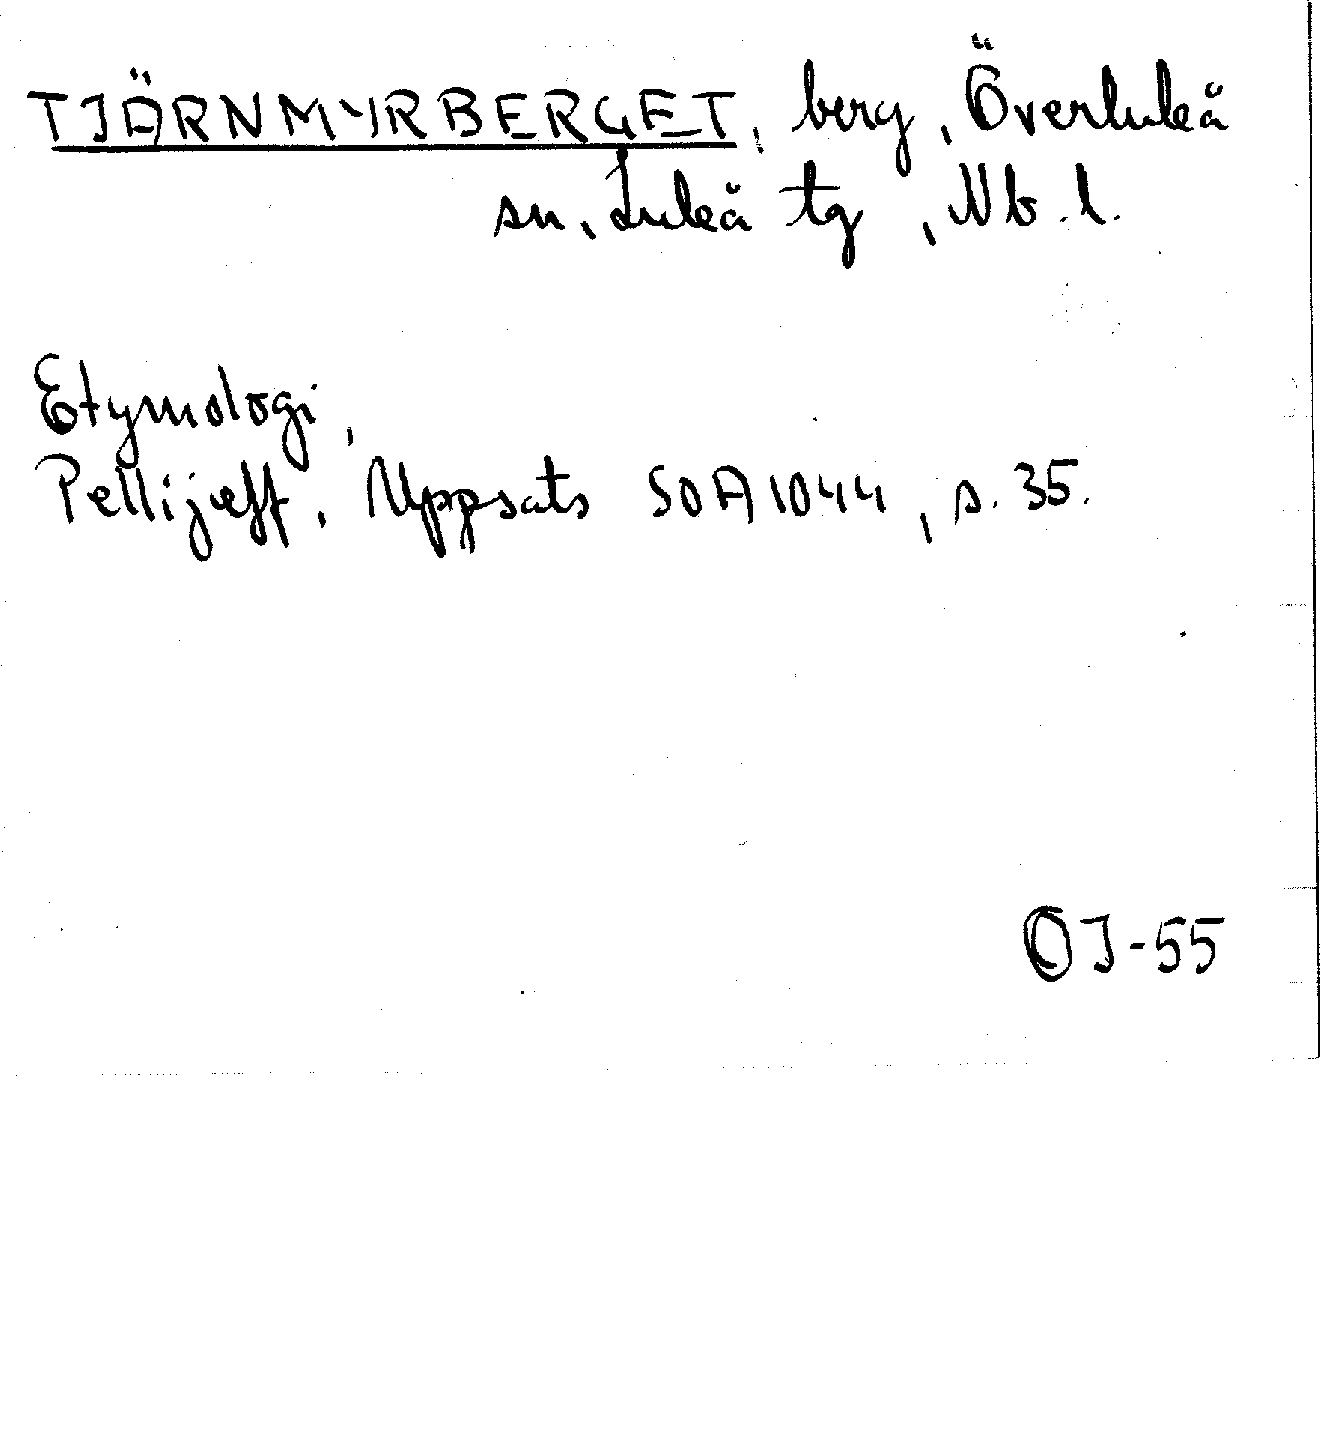 TJÄRNMYRBERGET, berg, Överluleå
sn, Luleå tg, Nb. l.
Etymologi,
Pellijeff, Uppsats SOA 1044, s. 35.
OJ-55